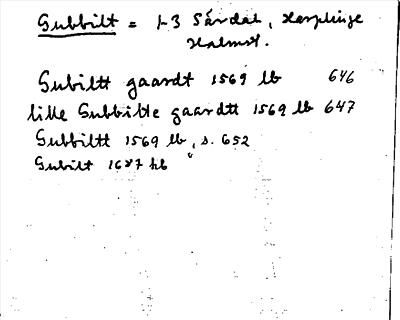 Gubbilt = 1-3 Särdal, Harplinge
Halmst.
Gubiltt gaardt 1569 lb 646
lille Gubbilte gaardtt 1569 lb 647
Gubbiltt 1569 lb, s. 652
Gubilt 1687 hb